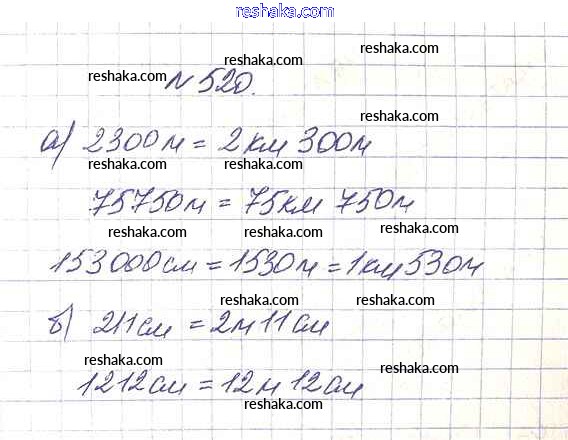 reshaka.com
reshaka.com
reshaka.com reshaka.com
№ 520.
reshaka.com reshaka.com
а) 2300м = 2км 300м
reshaka.com reshaka.com
75750м = 75км 750м
reshaka.com reshaka.com
153000см = 1530м = 1км 530м
reshaka.com reshaka.com
б) 211см = 2м 11см
reshaka.com reshaka.com
1212см = 12м 12см
reshaka.com reshaka.com